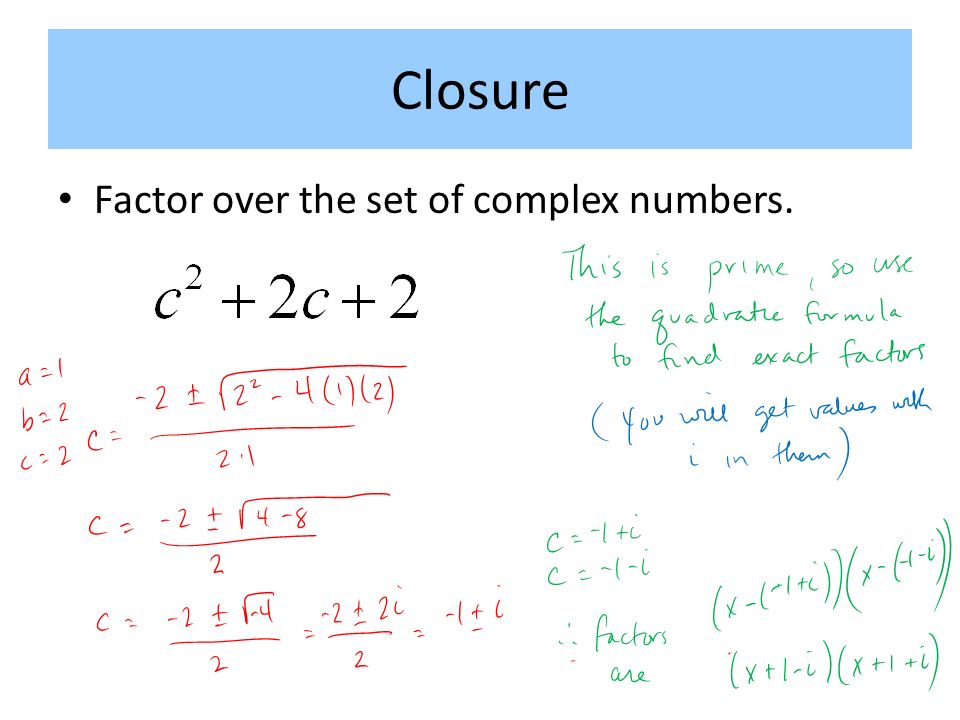 Closure
• Factor over the set of complex numbers.
c² + 2c + 2
This is prime, so use
the quadratic formula
to find exact factors
(You will get values with
i in them)
a = 1
b = 2
c = 2
c = (-2 ± √(2² - 4(1)(2))) / (2·1)
c = (-2 ± √(4 - 8)) / 2
c = (-2 ± √-4) / 2 = (-2 ± 2i) / 2 = -1 ± i
c = -1 + i
c = -1 - i
∴ factors
are
(x - (-1+i))(x - (-1-i))
(x+1-i)(x+1+i)